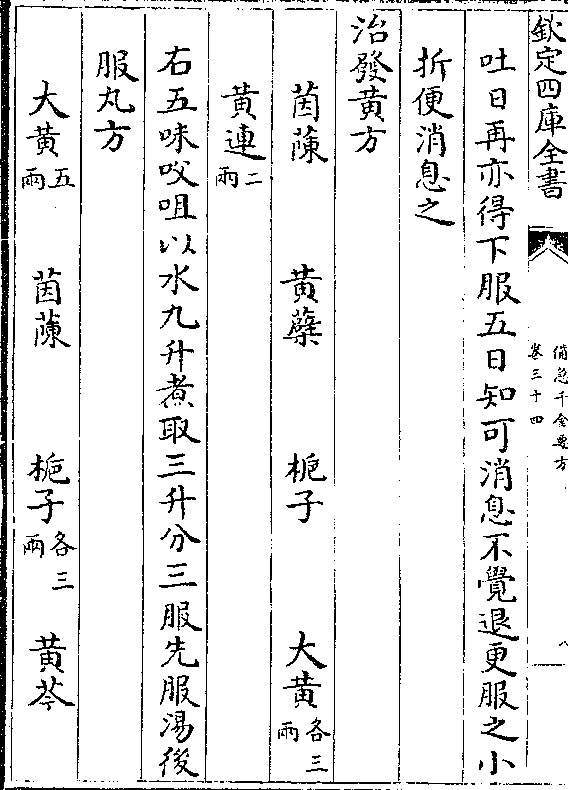 欽定四庫全書
備急千金要方
卷三十四
八
吐日再亦得下服五日知可消息不覺退更服之小
折便消息之
治發黃方
茵蔯 黃蘗 梔子 大黃各三兩
黃連二兩
右五味㕮咀以水九升煮取三升分三服先服湯後
服丸方
大黃五兩 茵蔯 梔子各三兩 黃芩